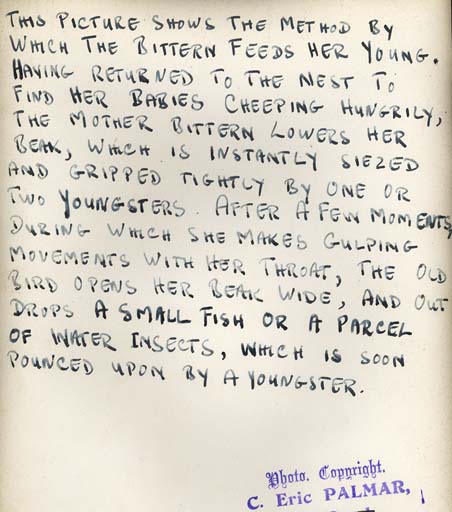 THIS PICTURE SHOWS THE METHOD BY
WHICH THE BITTERN FEEDS HER YOUNG.
HAVING RETURNED TO THE NEST TO
FIND HER BABIES CHEEPING HUNGRILY,
THE MOTHER BITTERN LOWERS HER
BEAK, WHICH IS INSTANTLY SIEZED
AND GRIPPED TIGHTLY BY ONE OR
TWO YOUNGSTERS. AFTER A FEW MOMENTS,
DURING WHICH SHE MAKES GULPING
MOVEMENTS WITH HER THROAT, THE OLD
BIRD OPENS HER BEAK WIDE, AND OUT
DROPS A SMALL FISH OR A PARCEL
OF WATER INSECTS, WHICH IS SOON
POUNCED UPON BY A YOUNGSTER.
Photo. Copyright.
C. Eric PALMAR,